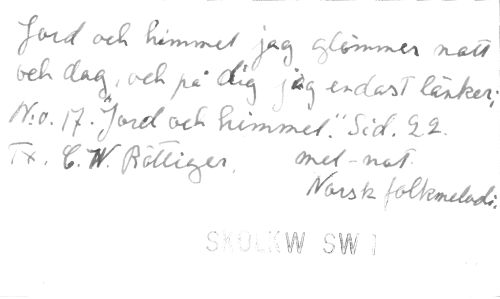 Jord och himmel jag glömmer natt
och dag, och på dig jag endast tänker.
N:o. 17. "Jord och himmel." Sid. 22.
Tx. C. W. Böttiger. mel-nat.
Norsk folkmelodi.
SKOLKW SW 1